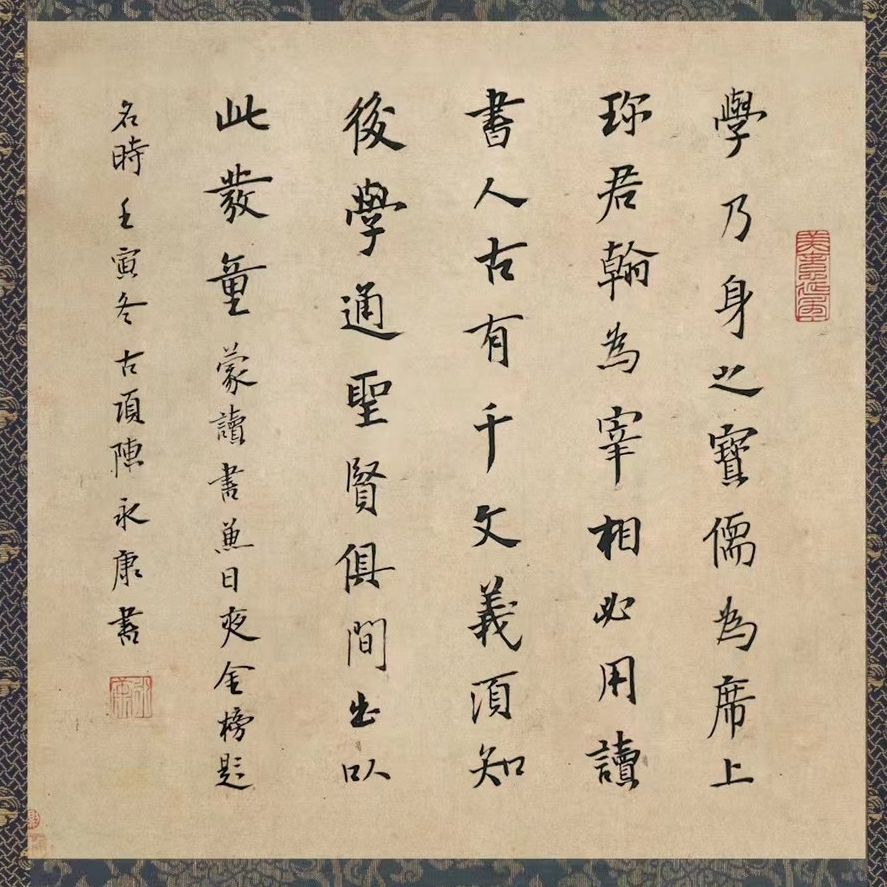 學乃身之寶儒為席上
珎君翰為宰相必用讀
書人古有千文義須知
後學通聖賢俱間出以
此發童蒙讀書魚日夜金榜題
名時壬寅冬古項陳永康書